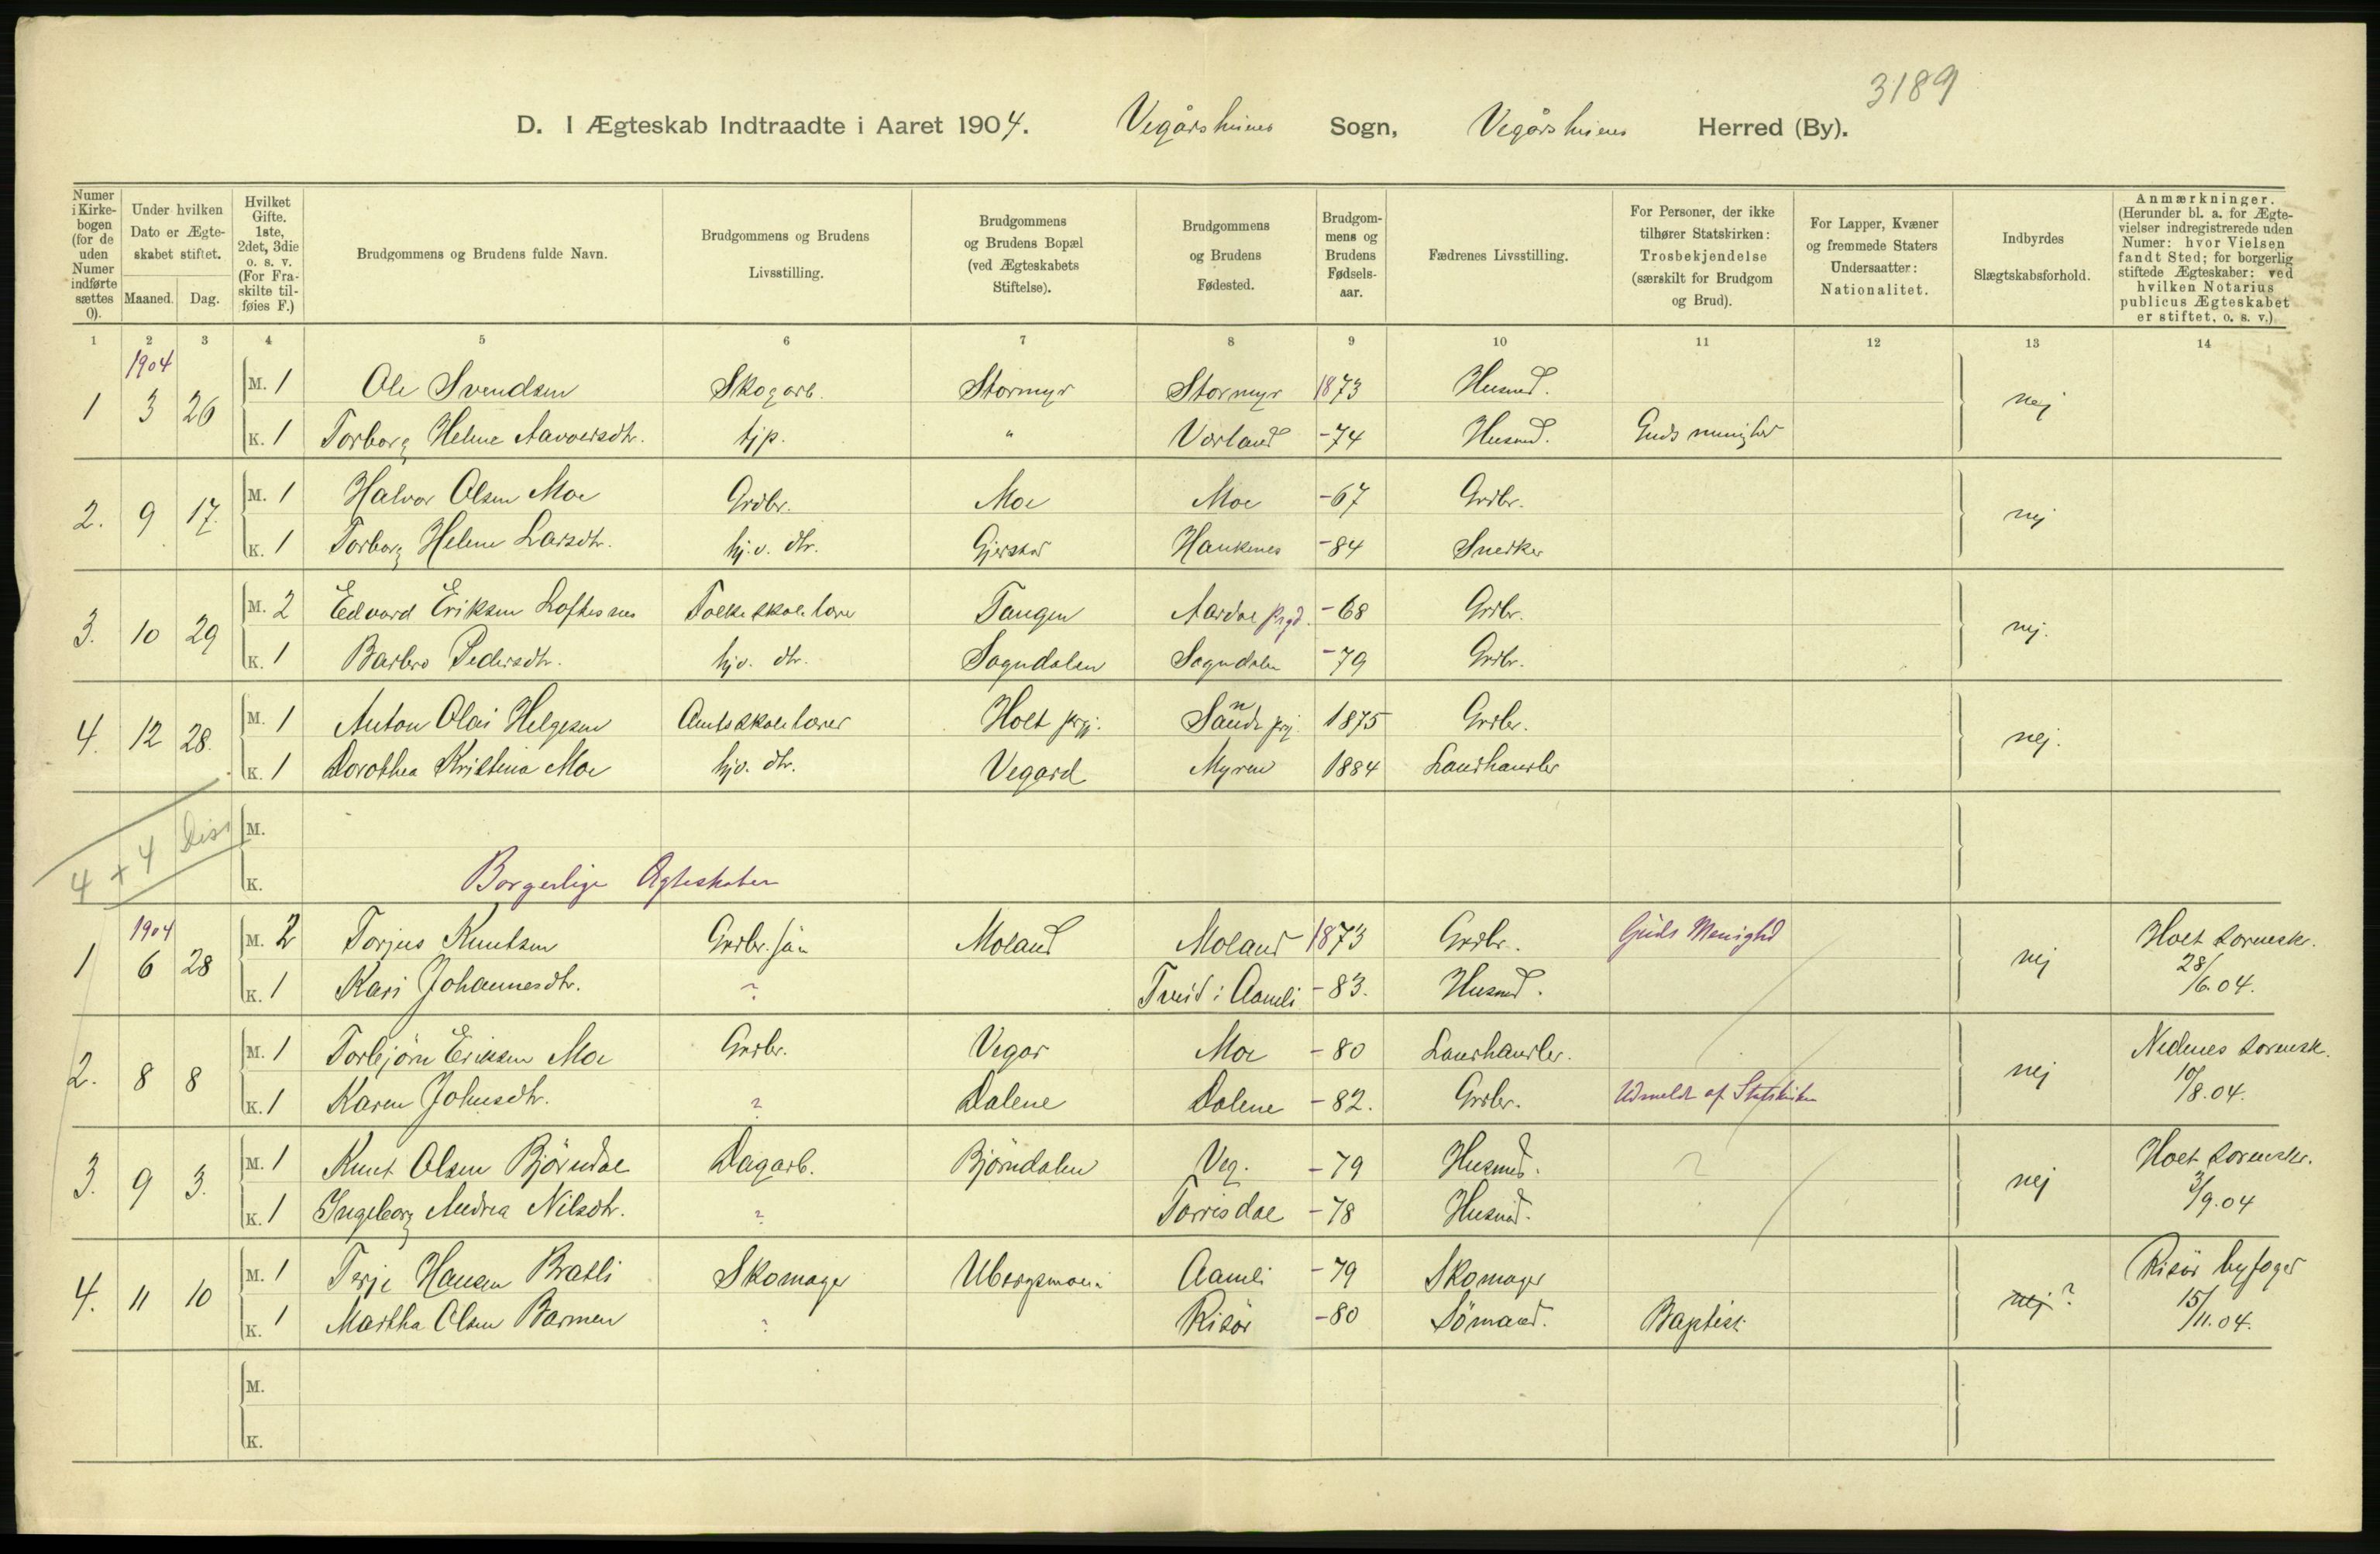 3189
D. I Ægteskab Indtraadte i Aaret 1904. Sogn, Herred (By).
Numer i Kirkebogen (for de uden Numer indførte sættes 0).
Under hvilken Dato er Ægteskabet stiftet.
Maaned. Dag.
Hvilket Gifte. 1ste, 2det, 3die o. s. v. (For Fraskilte tilføies F.)
Brudgommens og Brudens fulde Navn.
Brudgommens og Brudens Livsstilling.
Brudgommens og Brudens Bopæl (ved Ægteskabets Stiftelse).
Brudgommens og Brudens Fødested.
Brudgommens og Brudens Fødselsaar.
Fædrenes Livsstilling.
For Personer, der ikke tilhører Statskirken: Trosbekjendelse (særskilt for Brudgom og Brud).
For Lapper, Kvæner og fremmede Staters Undersaatter: Nationalitet.
Indbyrdes Slægtskabsforhold.
Anmærkninger. (Herunder bl. a. for Ægtevielser indregistrerede uden Numer: hvor Vielsen fandt Sted; for borgerlig stiftede Ægteskaber: ved hvilken Notarius publicus Ægteskabet er stiftet, o. s. v.)
1 2 3 4 5 6 7 8 9 10 11 12 13 14
1904
1 3 26 M. 1 Ole Svendsen Skogarb. Stormyr Stormyr 1873 Husmd. nej
K. 1 Torborg Helene hjp. " Vorland -74 Husmd. Guds menighed
2. 9 17. M. 1 Halvor Olsen Moe Grdbr. Moe Moe -67 Grdbr. nej
K. 1 Torborg Helene Larsdtr. hj. v. dtr. Haukenes -84 Snedker
3. 10 29 M. 2 Edvard Eriksen Loftesnes Folkeskolelærer Tangen Aardal prgd. -68 Grdbr. nej.
K. 1 Barbro Pedersdtr. hjv. dtr. Sogndalen Sogndalen -79 Grdbr.
4. 12 28. M. 1 Anton Olai Helgesen Amtsskolelærer Holt prgj. 1875 Grdbr. nej.
K. 1 Dorothea Kristina Moe hjv. dtr. Vegard Myren 1884 Landhandler
4 + 4 Diss M.
K. Borgerlige Ægteskaber
1904
1 6 28 M. 2 Torjus Knutsen Grdbr. søn Moland Moland 1873 Grdbr. Guds Menighd nej Holt sorensk. 28/6.04.
K. 1 Kari Johannesdtr. ? Aamli -83. Husmd.
2. 8 8 M. 1 Torbjörn Eriksen Moe Grdbr. Vegar Moe -80 Landhandler. nej Nedenes sorensk. 10/8.04.
K. 1 Karen Johnsdtr. ? Dalene Dalene -82. Grdbr. Udmeldt af Statskirken
3. 9 3. M. 1 Knut Olsen Björndal Dagarb. Björndalen Veg. -79 Husmd. ? nej Holt sorensk. 3/9.04
K. 1 Ingeborg Andrea Nilsdtr. ? Torrisdal -78 Husmd.
4. 11 10 M. 1 Terje Hansen Bratli Skomager Ubergsmoen Aamli -79 Skomager nej ? Risör byfoged 15/11.04.
K. 1 Martha Olsen Barmen ? Risör -80 Sömand. Baptist
M.
K.